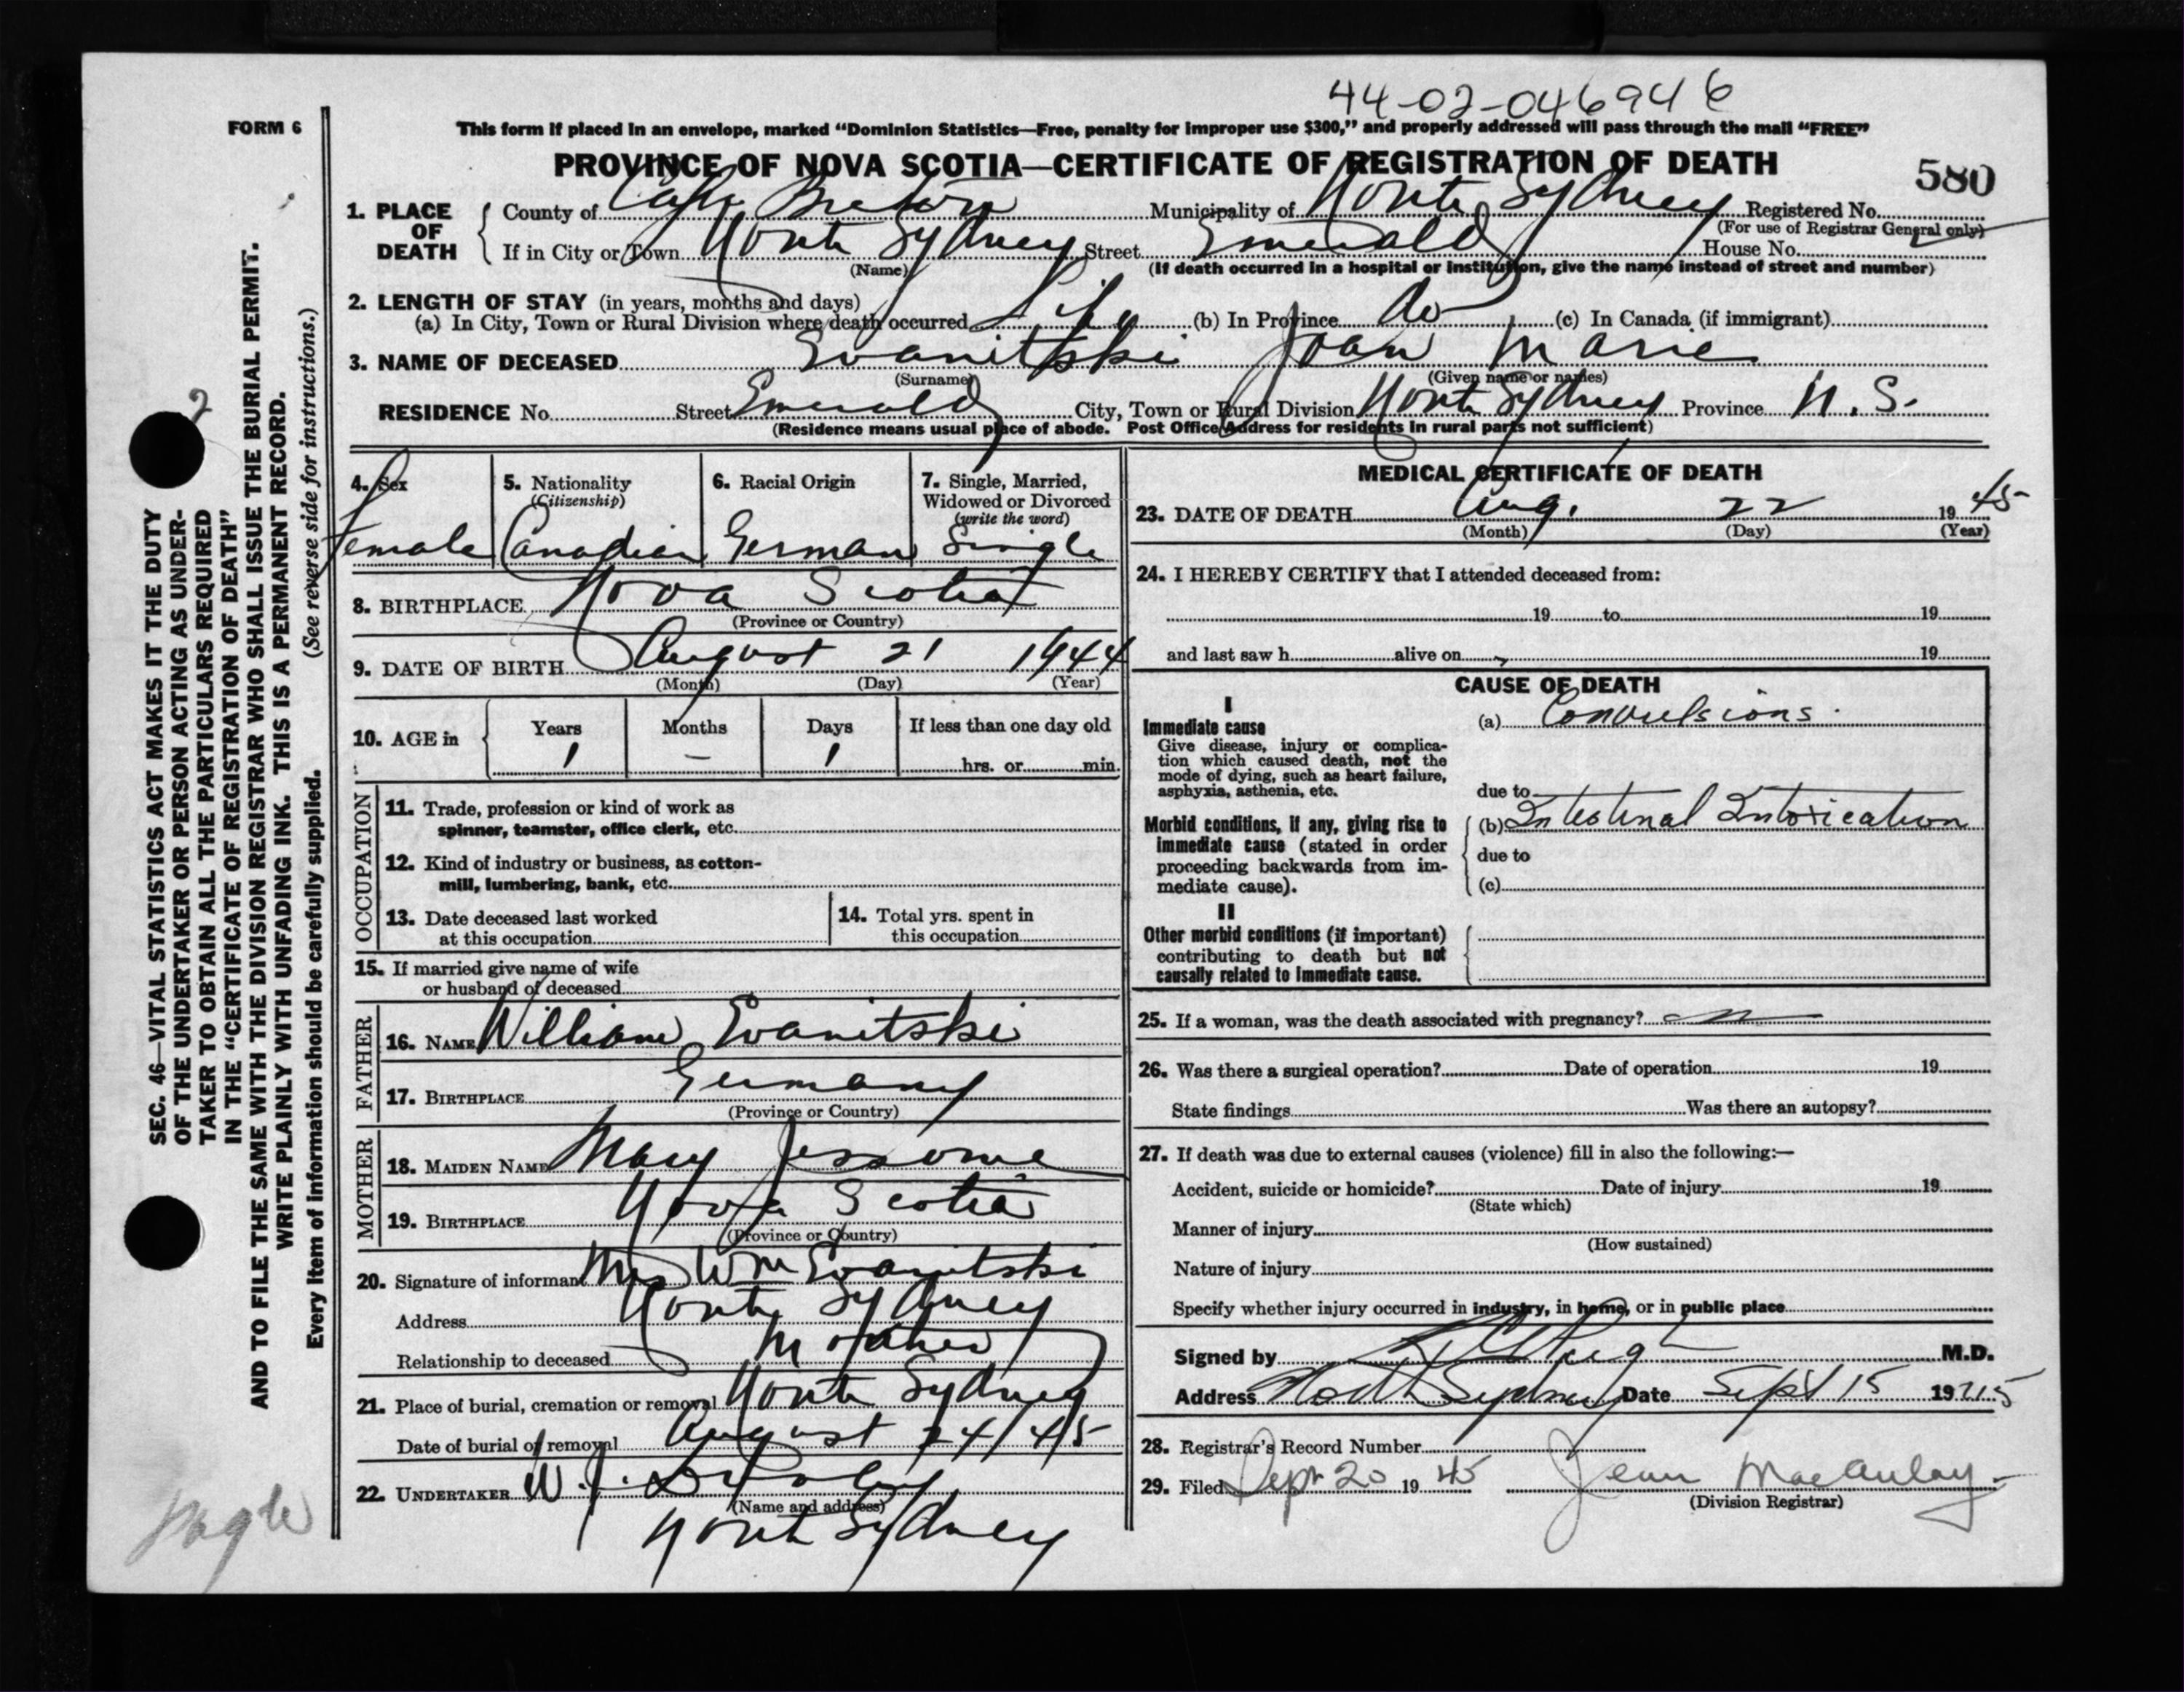 44-02-046946
FORM 6
This form if placed in an envelope, marked "Dominion Statistics—Free, penalty for improper use $300," and properly addressed will pass through the mail "FREE"
PROVINCE OF NOVA SCOTIA—CERTIFICATE OF REGISTRATION OF DEATH
580
1. PLACE OF DEATH
County of Cape Breton Municipality of North Sydney Registered No.
(For use of Registrar General only)
If in City or Town North Sydney Street Emerald House No.
(Name) (If death occurred in a hospital or institution, give the name instead of street and number)
2. LENGTH OF STAY (in years, months and days)
(a) In City, Town or Rural Division where death occurred Life (b) In Province do (c) In Canada (if immigrant)
3. NAME OF DECEASED Evanitski Joan Marie
(Surname) (Given name or names)
RESIDENCE No. Street Emerald City, Town or Rural Division North Sydney Province N.S.
(Residence means usual place of abode. Post Office Address for residents in rural parts not sufficient)
4. Sex
Female
5. Nationality
(Citizenship)
Canadian
6. Racial Origin
German
7. Single, Married,
Widowed or Divorced
(write the word)
Single
8. BIRTHPLACE Nova Scotia
(Province or Country)
9. DATE OF BIRTH August 21 1944
(Month) (Day) (Year)
10. AGE in
Years Months Days If less than one day old
1 — 1 hrs. or min.
OCCUPATION
11. Trade, profession or kind of work as
spinner, teamster, office clerk, etc.
12. Kind of industry or business, as cotton-
mill, lumbering, bank, etc.
13. Date deceased last worked
at this occupation
14. Total yrs. spent in
this occupation
15. If married give name of wife
or husband of deceased
FATHER
16. NAME William Evanitski
17. BIRTHPLACE Germany
(Province or Country)
MOTHER
18. MAIDEN NAME Mary Jessome
19. BIRTHPLACE Nova Scotia
(Province or Country)
20. Signature of informant Mrs Wm Evanitski
Address North Sydney
Relationship to deceased Mother
21. Place of burial, cremation or removal North Sydney
Date of burial or removal August 24/45
22. UNDERTAKER W. J.
(Name and address)
North Sydney
MEDICAL CERTIFICATE OF DEATH
23. DATE OF DEATH Aug. 22 1945
(Month) (Day) (Year)
24. I HEREBY CERTIFY that I attended deceased from:
19 to 19
and last saw h alive on 19
CAUSE OF DEATH
I
Immediate cause
Give disease, injury or complica-
tion which caused death, not the
mode of dying, such as heart failure,
asphyxia, asthenia, etc.
(a) Convulsions.
due to
Morbid conditions, if any, giving rise to
immediate cause (stated in order
proceeding backwards from im-
mediate cause).
(b) Intestinal Intoxication
due to
(c)
II
Other morbid conditions (if important)
contributing to death but not
causally related to immediate cause.
25. If a woman, was the death associated with pregnancy?
26. Was there a surgical operation? Date of operation 19
State findings Was there an autopsy?
27. If death was due to external causes (violence) fill in also the following:—
Accident, suicide or homicide? Date of injury 19
(State which)
Manner of injury
(How sustained)
Nature of injury
Specify whether injury occurred in industry, in home, or in public place
Signed by M.D.
Address North Sydney Date Sept 15 1945
28. Registrar's Record Number
29. Filed Sept 20 1945 Jean MacAulay
(Division Registrar)
SEC. 46—VITAL STATISTICS ACT MAKES IT THE DUTY
OF THE UNDERTAKER OR PERSON ACTING AS UNDER-
TAKER TO OBTAIN ALL THE PARTICULARS REQUIRED
IN THE "CERTIFICATE OF REGISTRATION OF DEATH"
AND TO FILE THE SAME WITH THE DIVISION REGISTRAR WHO SHALL ISSUE THE BURIAL PERMIT.
WRITE PLAINLY WITH UNFADING INK. THIS IS A PERMANENT RECORD.
Every item of information should be carefully supplied. (See reverse side for instructions.)
2